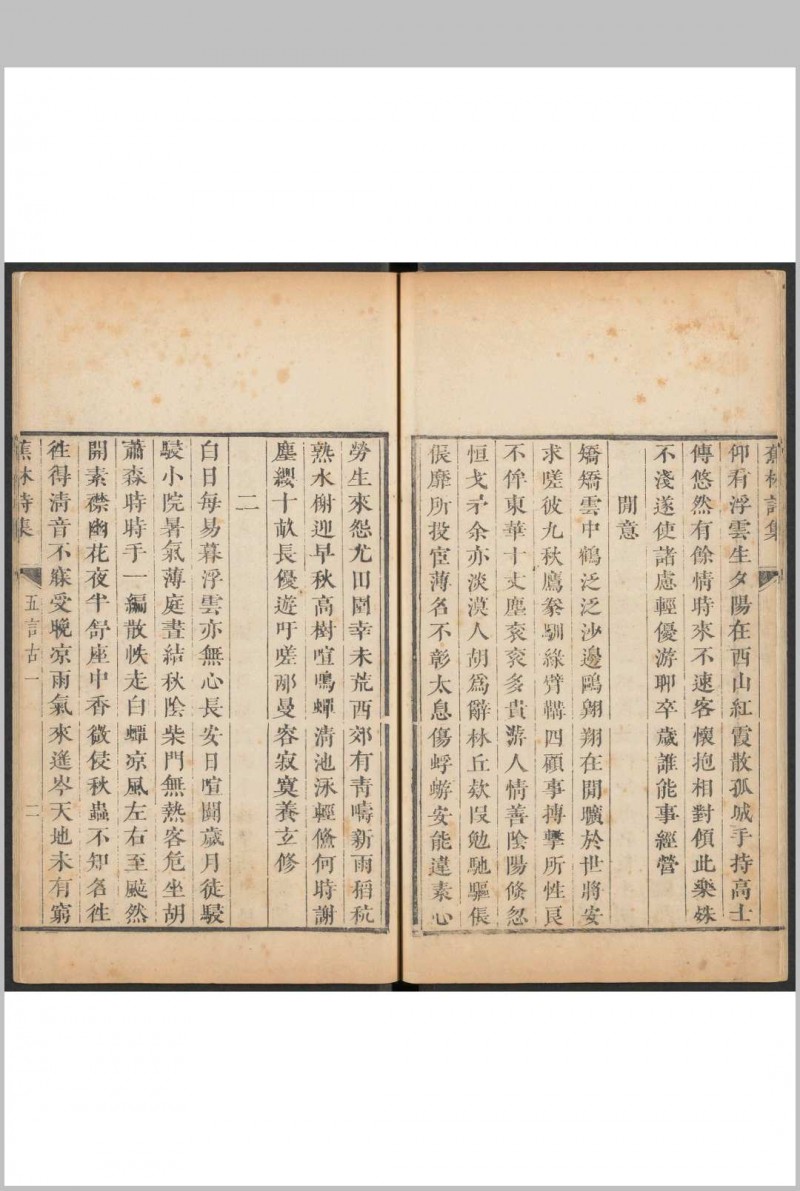 蕉林詩集
仰看浮雲生夕陽在西山紅霞散孤城手持高士
傳悠然有餘情時來不速客懷抱相對傾此樂殊
不淺遂使諸慮輕優游聊卒歲誰能事經營
閒意
矯矯雲中鶴泛泛沙邊鷗翱翔在閒曠於世將安
求嗟彼九秋鷹豢馴綠臂鞲四顧事搏擊所性良
不侔東華十丈塵衮衮多貴游人情善陰陽倐忽
恒戈矛余亦淡漠人胡爲辭林丘欸段勉馳驅倀
倀靡所投宦薄名不彰太息傷蜉蝣安能違素心
勞生來怨尤田園幸未荒西郊有靑疇新雨稻秔
熟水榭迎早秋高樹喧鳴蟬清池泳輕鯈何時謝
塵纓十畝長優遊吁嗟鄗曼容寂寞養玄修
二
白日每易暮浮雲亦無心長安日喧闐歲月徒駸
駸小院暑氣薄庭晝結秋陰柴門無熱客危坐胡
蕭森時時手一編散帙走白蟫凉風左右至颯然
開素襟幽花夜半舒座中香微侵秋蟲不知名徃
徃得清音不寐受晚凉雨氣來遙岑天地未有窮
蕉林詩集
五言古一
二